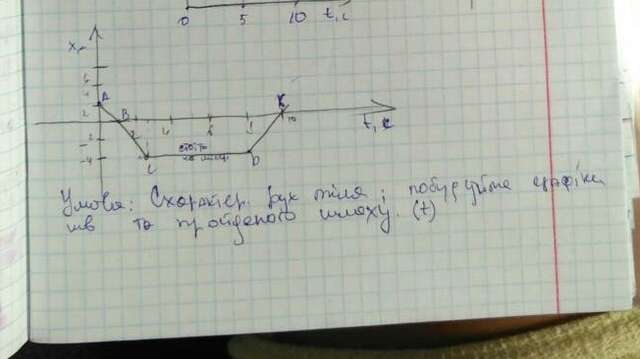 0 5 10 t, c
x, м
6
4
A
2
B
K
2 4 6 8 10
t, c
-2
-4
C
стоїть
на місці
D
Умова: Схарактер. рух тіла; побудуйте графіки
шв та пройденого шляху. (t)